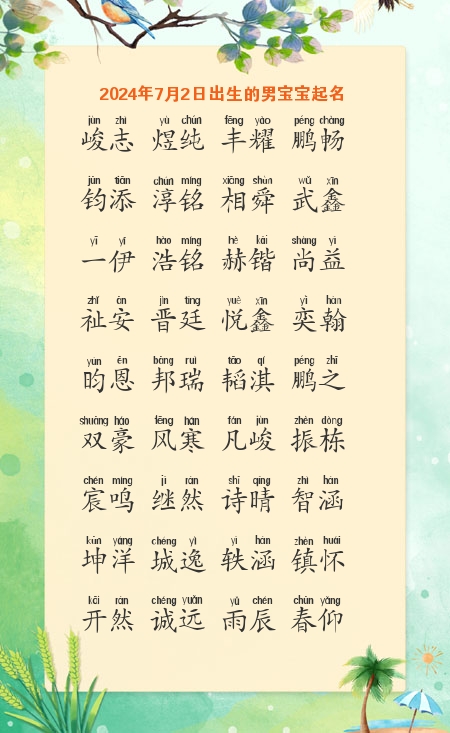 2024年7月2日出生的男宝宝起名
jùn zhì yù chún fēng yào péng chàng
峻志 煜纯 丰耀 鹏畅
jūn tiān chún míng xiāng shùn wǔ xīn
钧添 淳铭 相舜 武鑫
yī yī hào míng hè kǎi shàng yì
一伊 浩铭 赫锴 尚益
zhǐ ān jìn tíng yuè xīn yì hàn
祉安 晋廷 悦鑫 奕翰
yún ēn bāng ruì tāo qí péng zhī
昀恩 邦瑞 韬淇 鹏之
shuāng háo fēng hán fán jùn zhèn dòng
双豪 风寒 凡峻 振栋
chén míng jì rán shī qíng zhì hán
宸鸣 继然 诗晴 智涵
kūn yáng chéng yì yì hán zhèn huái
坤洋 城逸 轶涵 镇怀
kāi rán chéng yuǎn yǔ chén chūn yǎng
开然 诚远 雨辰 春仰